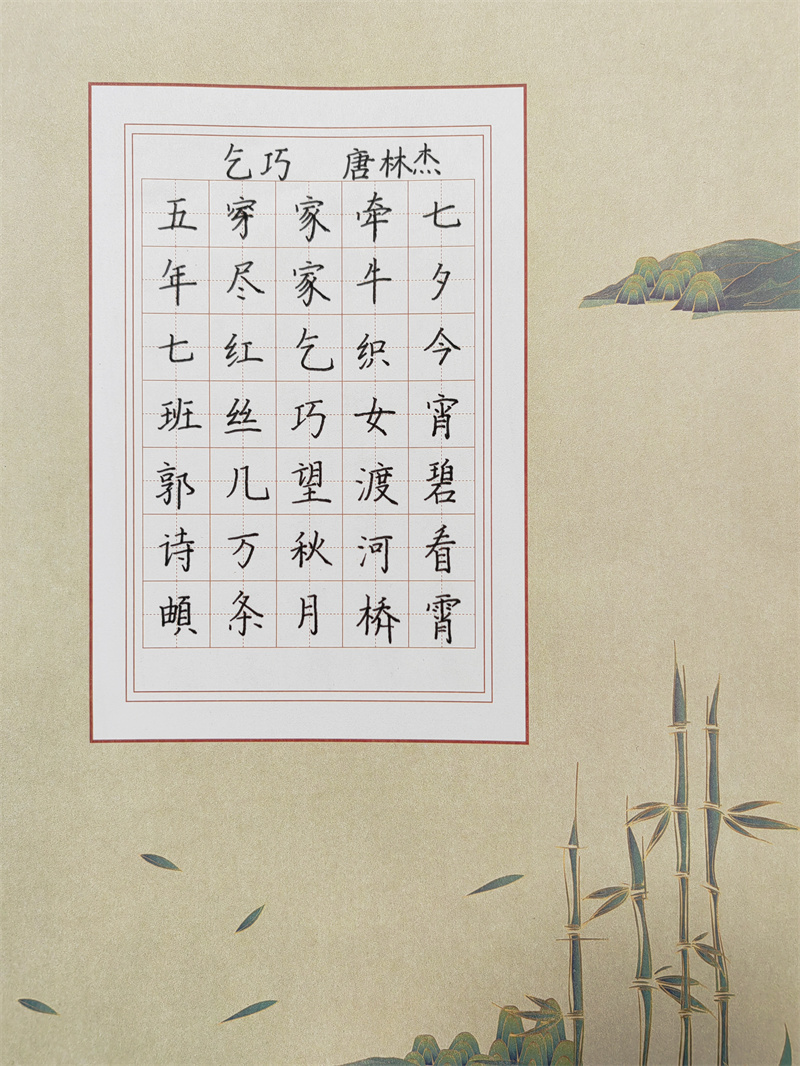 乞巧 唐林杰
七夕今宵碧看霄
牵牛织女渡河桥
家家乞巧望秋月
穿尽红丝几万条
五年七班郭诗頔